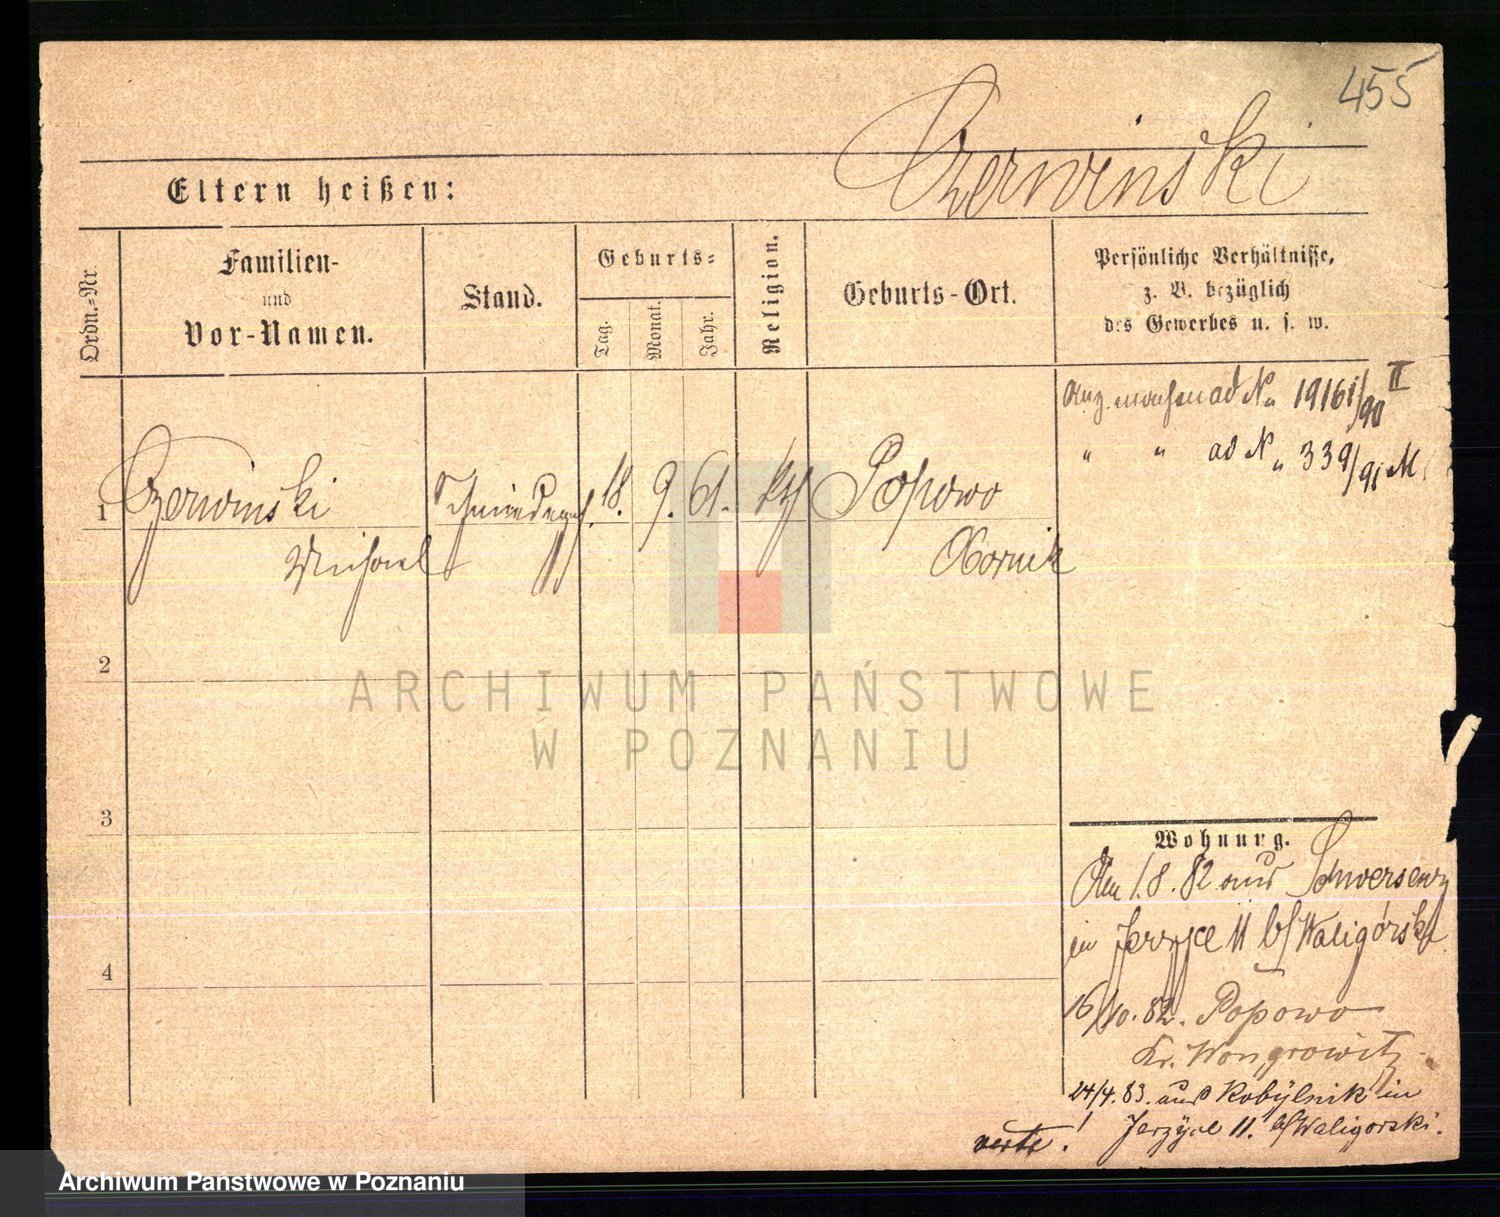 455
Czerwinski
Eltern heißen:
Ordn.=Nr.
Familien-
und
Vor-Namen.
Stand.
Geburts=
Tag.
Monat.
Jahr.
Religion.
Geburts-Ort.
Persönliche Verhältnisse,
z. B. bezüglich
des Gewerbes u. s. w.
ad N 19161/90 II
" " ad N 339/91 M
1 Czerwinski Schmiedegs. 18. 9. 61. kth Popowo
Michael Obornik
2
ARCHIWUM PAŃSTWOWE
W POZNANIU
3
4
Wohnung.
Am 1.8.82 aus Schwersenz
in Jerzyce 11 b/Waligórski
16/10.82. Popowo
Kr. Wongrowitz
24/4.83. aus Kobylnik in
Jerzyce 11. b/Waligorski.
verte!
Archiwum Państwowe w Poznaniu